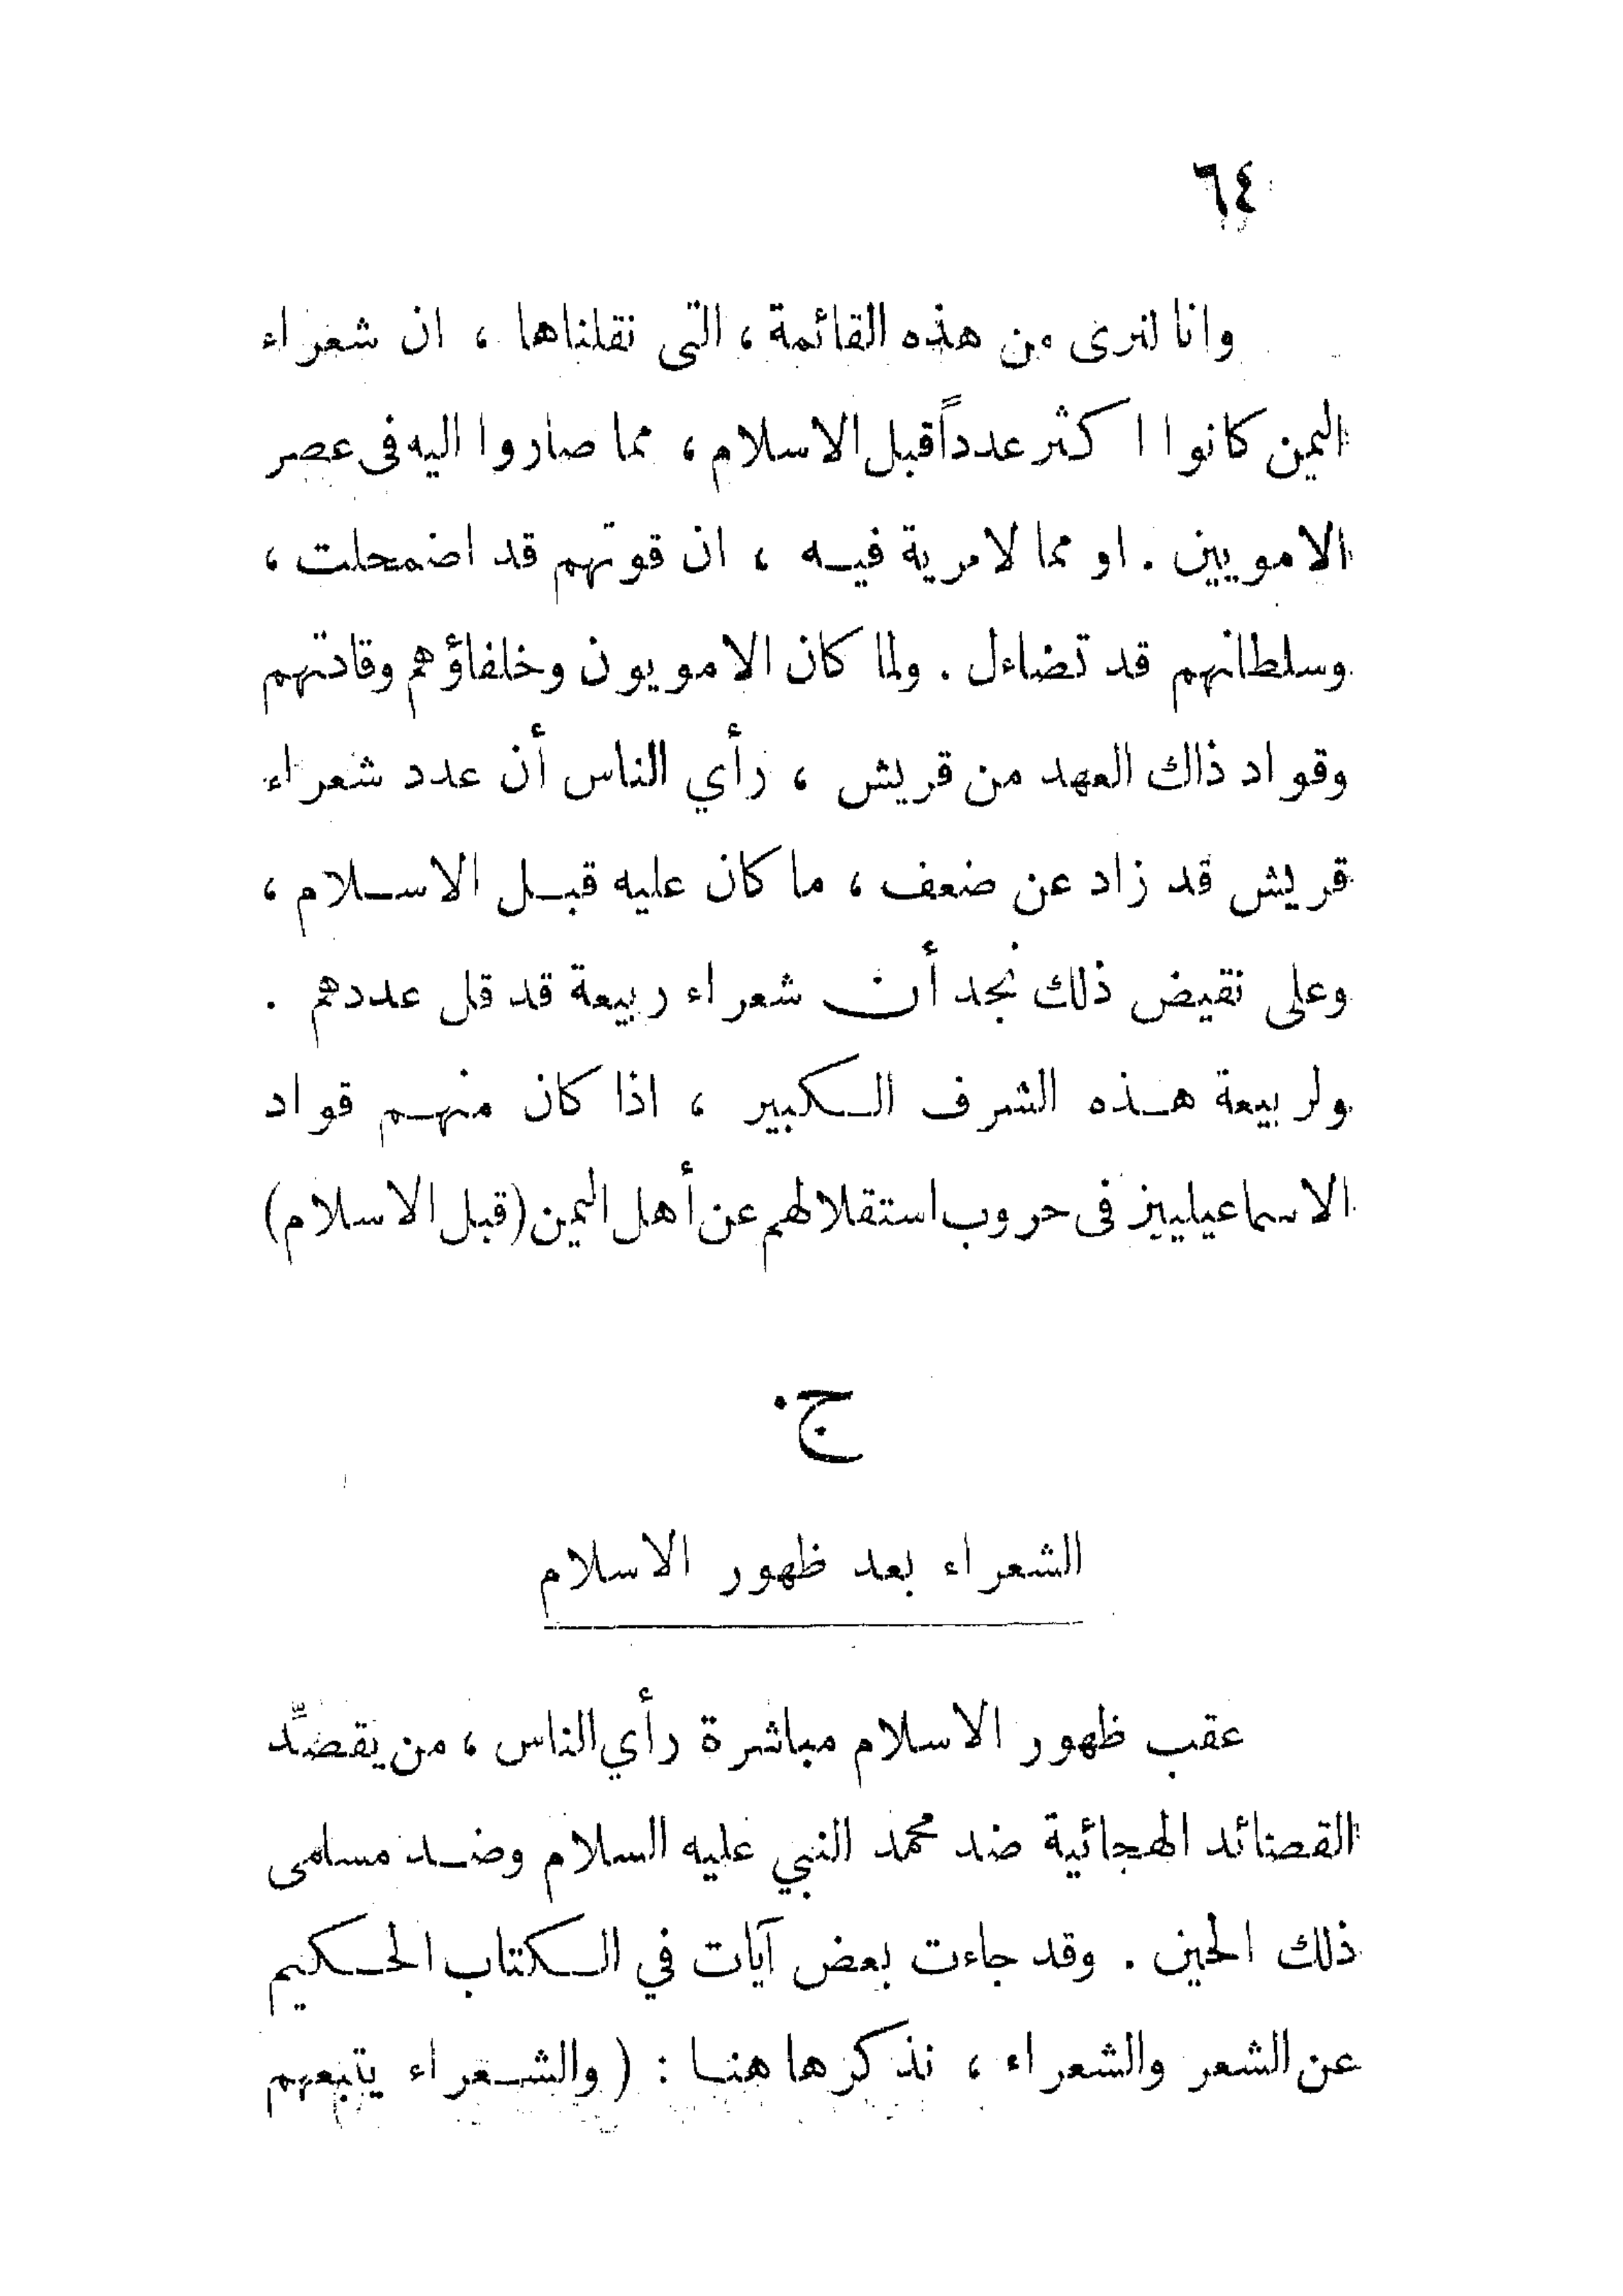 ٦٤
وانا لنرى من هذه القائمة ، التى نقلناها ، ان شعراء
اليمن كانوا اكثر عدداً قبل الاسلام ، مما صاروا اليه فى عصر
الامويين . او مما لامرية فيه ، ان قوتهم قد اضمحلت ،
وسلطانهم قد تضاءل . ولما كان الامويون وخلفاؤهم وقادتهم
وقواد ذاك العهد من قريش ، رأي الناس أن عدد شعراء
قريش قد زاد عن ضعف ، ما كان عليه قبل الاسلام ،
وعلى نقيض ذلك نجد أن شعراء ربيعة قد قل عددهم .
ولربيعة هذه الشرف الكبير ، اذا كان منهم قواد
الاسماعيليين فى حروب استقلالهم عن أهل اليمن (قبل الاسلام)
ج .
الشعراء بعد ظهور الاسلام
عقب ظهور الاسلام مباشرة رأي الناس ، من يقصِّد
القصائد الهجائية ضد محمد النبي عليه السلام وضد مسلمى
ذلك الحين . وقد جاءت بعض آيات في الكتاب الحكيم
عن الشعر والشعراء ، نذكرها هنا : ( والشعراء يتبعهم